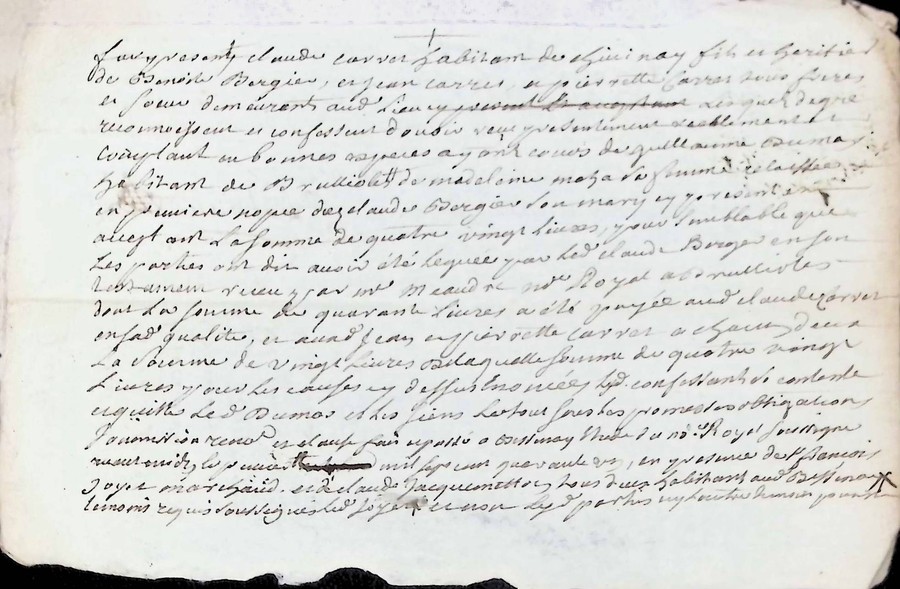 furent presents claude carret habitant de chivinay fils et heritier
de Benoite Bergier, et jean carret, et pierrette Carret tous freres
et soeur demeurants aud. lieu cy present Lesquels de gré
reconnoissent et confessent d'avoir reçu presentement reellement et
comptant en bonnes especes ayant cours de guillaume Dumas
habitant de Brullioles de madeleine
en premiere nopce de claude Bergier son mary cy present et
acceptant La somme de quatre vingt Livres, pour semblable que
Les parties ont dit avoir été leguée par led. claude Berger en son
testament reçeu par me Meandre nre Royal a Brullioles
dont La somme de quarante Livres a été payée aud. claude Carret
en sad. qualité, et auxd. jean et pierrette Carret a chacun deux
La somme de vingt Livres De laquelle somme de quatre vingt
Livres pour Les causes cy dessus enoncées Led. confessants se contente
et quitte Led. Dumas et les siens Le tout sous les promesses obligations
soumission renon. et clause fait et passé a Bessenay étude du nore Royal soussigné
avant midy le premier mil sept cent quarante six, en presence de sr francois
joye marchand et de claude jacquemetton tous deux habitant aud. Bessenay
temoins requis soussignés led. joye et non les parties